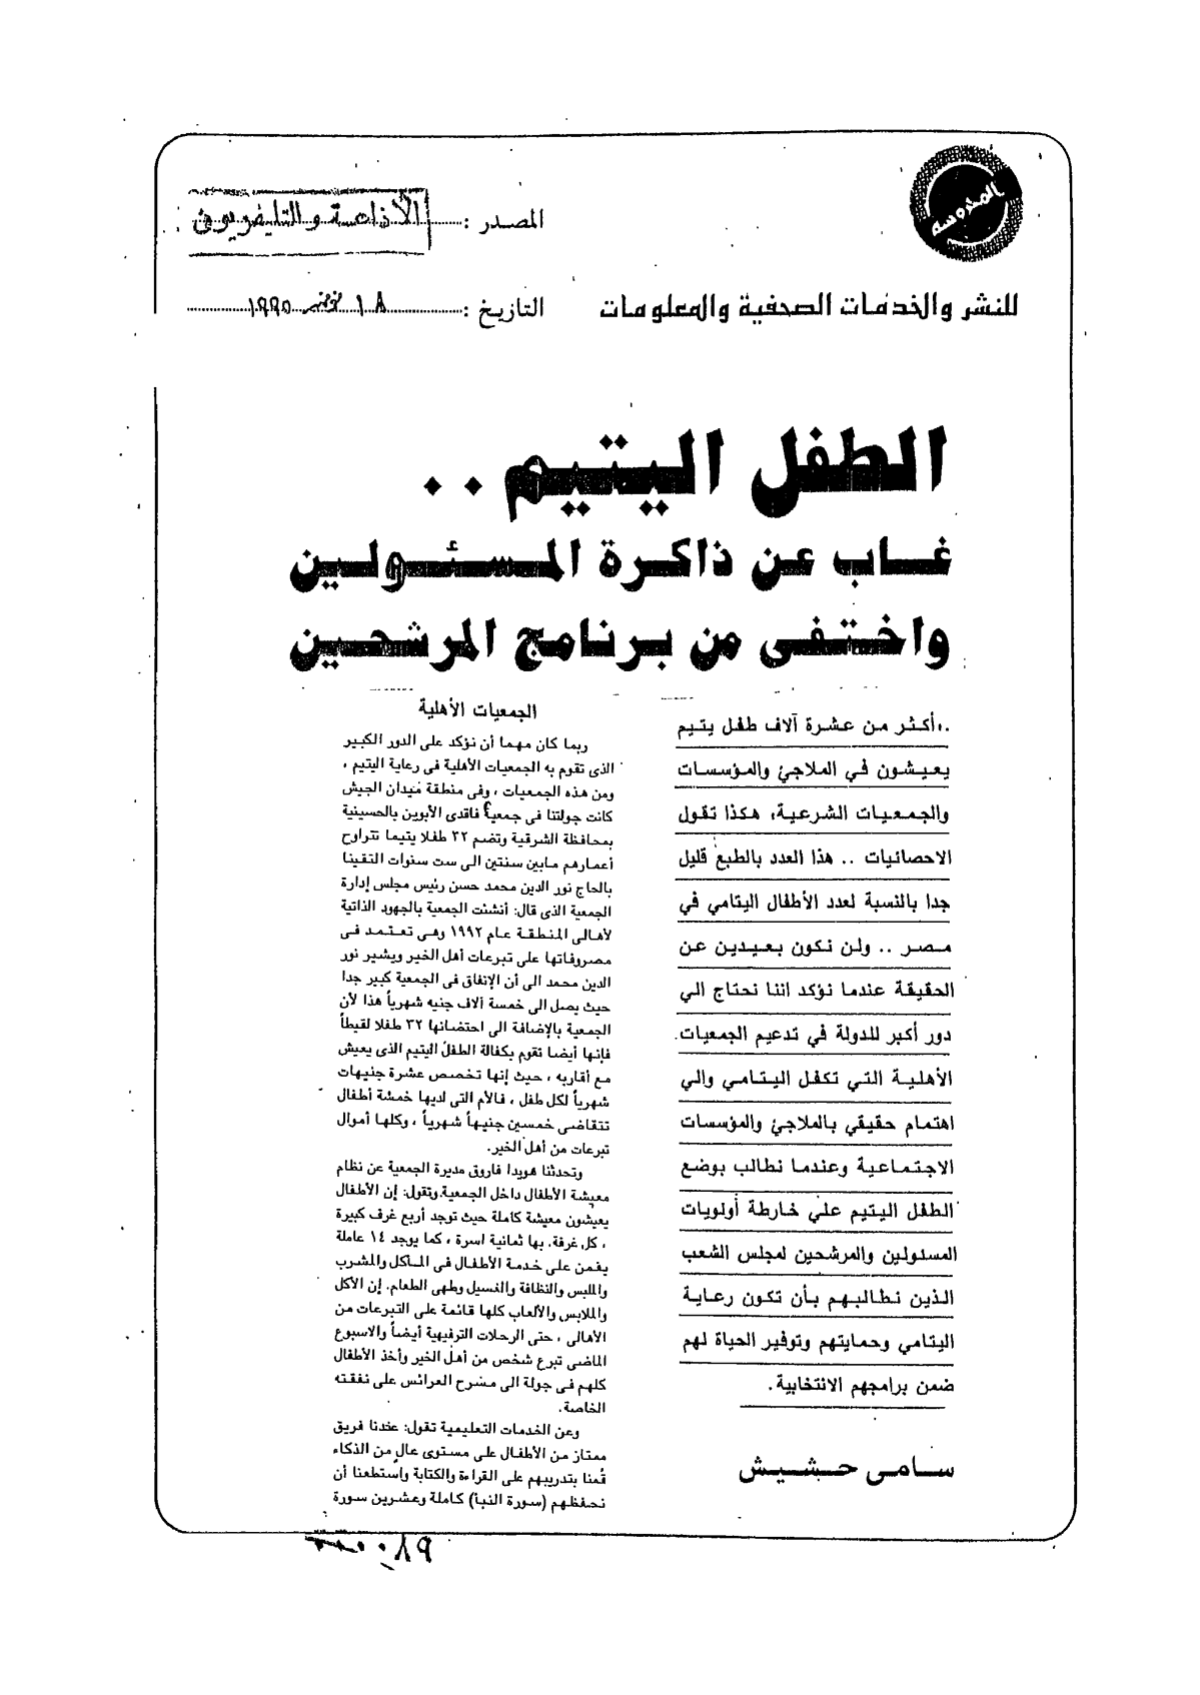 المحروسة
المصدر : الأذاعة والتليفزيون
للنشر والخدمات الصحفية والمعلومات
التاريخ : ١٨ نوفمبر ١٩٩٥
الطفل اليتيم ..
غاب عن ذاكرة المسئولين
واختفى من برنامج المرشحين
..أكثر من عشرة آلاف طفل يتيم
يعيشون في الملاجئ والمؤسسات
والجمعيات الشرعية، هكذا تقول
الاحصائيات .. هذا العدد بالطبع قليل
جدا بالنسبة لعدد الأطفال اليتامي في
مصر .. ولن نكون بعيدين عن
الحقيقة عندما نؤكد اننا نحتاج الي
دور أكبر للدولة في تدعيم الجمعيات
الأهلية التي تكفل اليتامي والي
اهتمام حقيقي بالملاجئ والمؤسسات
الاجتماعية وعندما نطالب بوضع
الطفل اليتيم علي خارطة أولويات
المسئولين والمرشحين لمجلس الشعب
الذين نطالبهم بأن تكون رعاية
اليتامي وحمايتهم وتوفير الحياة لهم
ضمن برامجهم الانتخابية.
سامى حشيش
الجمعيات الأهلية
ربما كان مهما أن نؤكد على الدور الكبير
الذى تقوم به الجمعيات الأهلية فى رعاية اليتيم ،
ومن هذه الجمعيات ، وفى منطقة ميدان الجيش
كانت جولتنا فى جمعية فاقدى الأبوين بالحسينية
بمحافظة الشرقية وتضم ٣٢ طفلا يتيما تتراوح
أعمارهم مابين سنتين الى ست سنوات التقينا
بالحاج نور الدين محمد حسن رئيس مجلس إدارة
الجمعية الذى قال: أنشئت الجمعية بالجهود الذاتية
لأهالى المنطقة عام ١٩٩٢ وهى تعتمد فى
مصروفاتها على تبرعات أهل الخير ويشير نور
الدين محمد الى أن الإنفاق فى الجمعية كبير جدا
حيث يصل الى خمسة آلاف جنيه شهرياً هذا لأن
الجمعية بالإضافة الى احتضانها ٣٢ طفلا لقيطاً
فإنها أيضا تقوم بكفالة الطفل اليتيم الذى يعيش
مع أقاربه ، حيث إنها تخصص عشرة جنيهات
شهرياً لكل طفل ، فالأم التى لديها خمشة أطفال
تتقاضى خمسين جنيهاً شهرياً ، وكلها أموال
تبرعات من أهل الخير.
وتحدثنا هويدا فاروق مديرة الجمعية عن نظام
معيشة الأطفال داخل الجمعية وتقول: إن الأطفال
يعيشون معيشة كاملة حيث توجد أربع غرف كبيرة
، كل غرفة بها ثمانية اسرة ، كما يوجد ١٤ عاملة
يقمن على خدمة الأطفال فى المأكل والمشرب
والملبس والنظافة والغسيل وطهى الطعام. إن الأكل
والملابس والألعاب كلها قائمة على التبرعات من
الأهالى ، حتى الرحلات الترفيهية أيضاً والاسبوع
الماضى تبرع شخص من أهل الخير وأخذ الأطفال
كلهم فى جولة الى مسرح العرائس على نفقته
الخاصة.
وعن الخدمات التعليمية تقول: عندنا فريق
ممتاز من الأطفال على مستوى عال من الذكاء
قمنا بتدريبهم على القراءة والكتابة واستطعنا أن
نحفظهم (سورة النبأ) كاملة وعشرين سورة